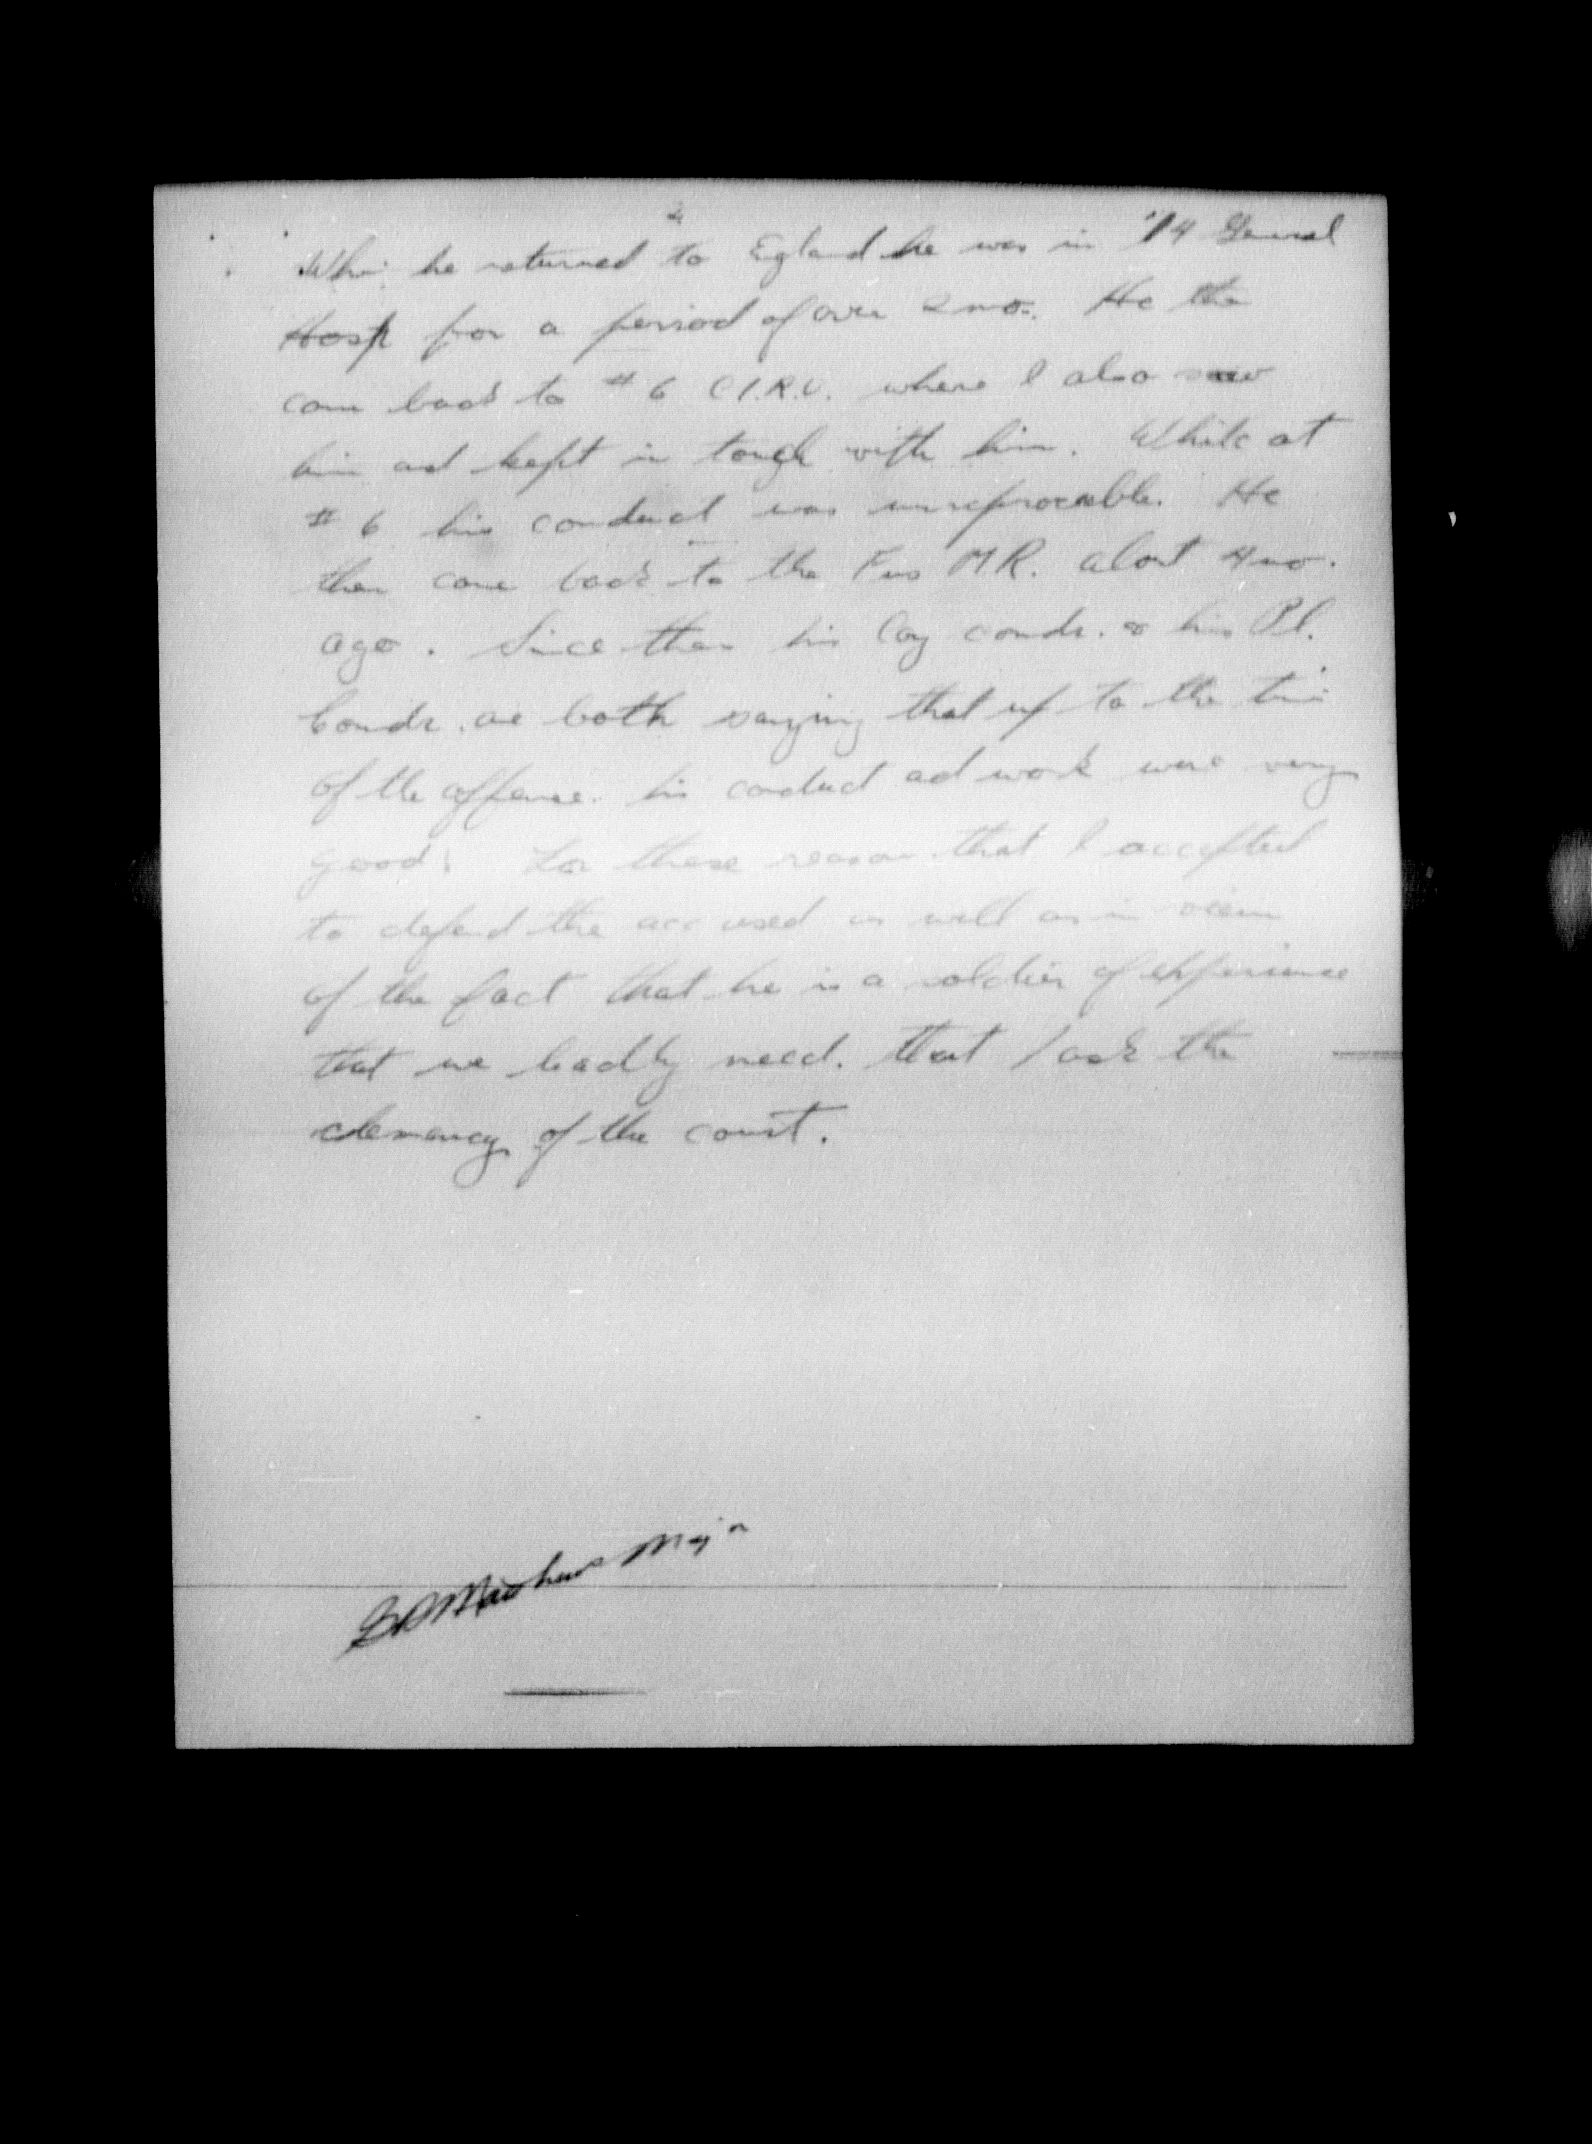 2
When he returned to Egland he was in 14 General
Hosp for a period of over 2 mo. He the
came back to # 6 C.I.R.U. where I also saw
him and kept in touch with him. While at
# 6 his conduct was unreproceable. He
then came back to the Fus M.R. about 4 mo.
ago. Since then his Coy comdr. & his Pl.
Comdr. are both saying that up to the time
of the offense his conduct and work were very
good. For these reason that I accepted
to defend the accused as well as in view
of the fact that he is a soldier of experience
that we badly need. that I ask the
clemency of the court.
Major